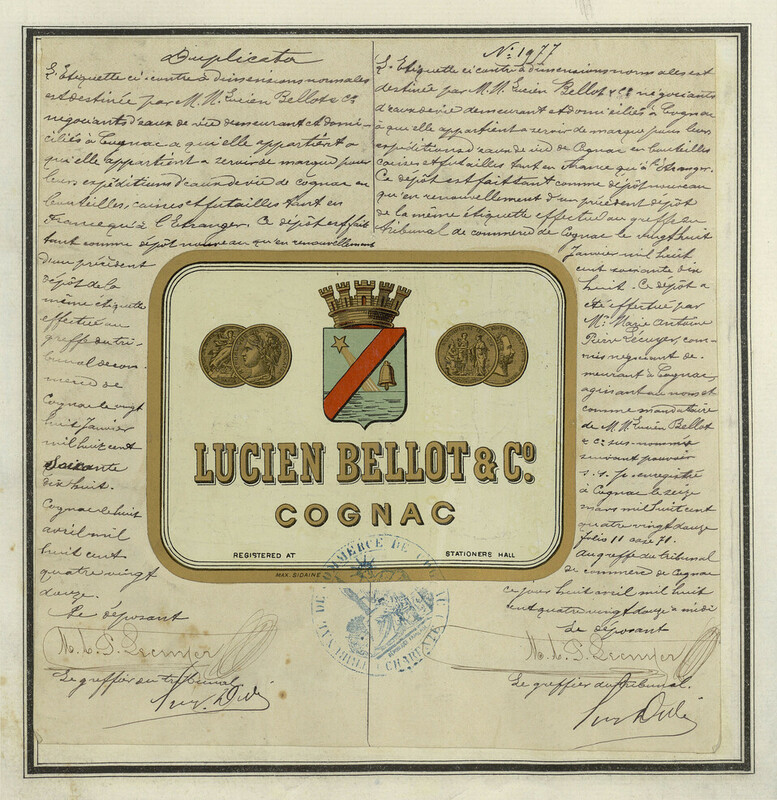 Duplicata
L'Etiquette ci-contre à dimensions normales
est destinée par M.M. Lucien Bellot & Cie
négociants d'eaux de vie demeurant et domi-
ciliés à Cognac a qui elle appartient a
qui elle appartient a servir de marque pour
leurs expéditions d'eaux de vie de cognac en
bouteilles, caisses et futailles tant en
France qu'à l'Etranger. Ce dépôt est fait
tant comme dépôt nouveau qu'en renouvellement
d'un précédent
dépôt de la
même étiquette
effectué au
greffe du tri-
bunal de com-
merce de
Cognac le vingt
huit janvier
mil huit cent
soixante
dix huit.
Cognac le huit
avril mil
huit cent
quatre vingt
douze.
Le déposant
Le greffier du tribunal
No 1977
L'Etiquette ci contre à dimensions normales est
destinée par M.M. Lucien Bellot & Cie négociants
d'eaux de vie demeurant et domiciliés à Cognac
à qui elle appartient a servir de marque pour leurs
expéditions d'eaux de vie de Cognac en bouteilles
caisses et futailles tant en France qu'à l'Etranger.
Ce dépôt est fait tant comme dépôt nouveau
qu'en renouvellement d'un précédent dépôt
de la même étiquette effectué au greffe du
tribunal de commerce de Cognac le vingt huit
Janvier mil huit
cent soixante dix
huit. Ce dépôt a
été effectué par
Mr Marie Antoine
Pierre Lécuyer, com-
mis négociant de-
meurant à Cognac,
agissant au nom et
comme mandataire
de M.M. Lucien Bellot
& Cie sus-nommés
suivant pouvoir
s. s. p. enregistré
à Cognac le seize
mars mil huit cent
quatre vingt douze
folio 11 case 71.
Au greffe du tribunal
de commerce de Cognac
ce jour huit avril mil huit
cent quatre vingt douze à midi
Le déposant
Le greffier du tribunal.
LUCIEN BELLOT & Co.
COGNAC
REGISTERED AT STATIONERS HALL
MAX. SIDAINE
COMMERCE DE COGNAC
CHARENTE